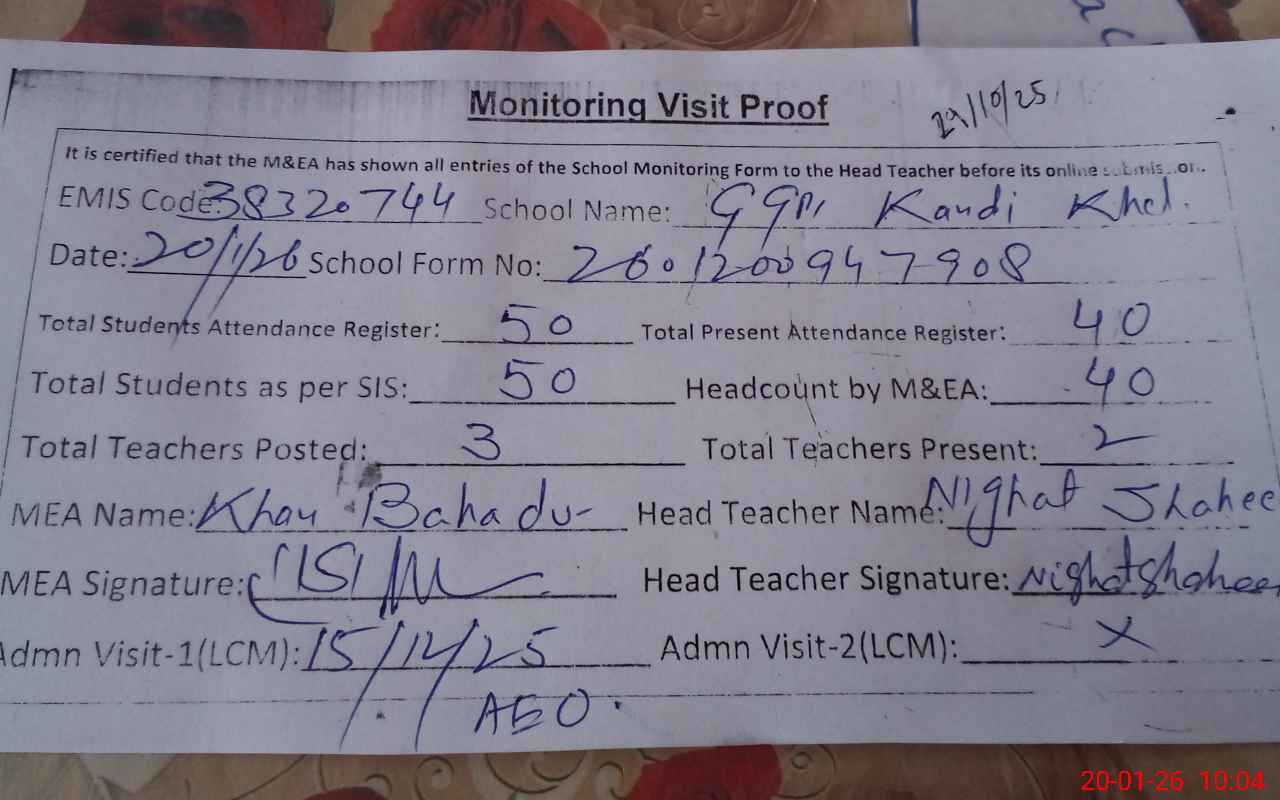 Monitoring Visit Proof
29/10/25
It is certified that the M&EA has shown all entries of the School Monitoring Form to the Head Teacher before its online submission.
EMIS Code: 38320744 School Name: GGPS Kandi Khel.
Date: 20/1/26 School Form No: 260120094 7908
Total Students Attendance Register: 50 Total Present Attendance Register: 40
Total Students as per SIS: 50 Headcount by M&EA: 40
Total Teachers Posted: 3 Total Teachers Present: 2
MEA Name: Khan Bahadur Head Teacher Name: Nighat Shahee
MEA Signature: Head Teacher Signature: Nighat Shahee
Admn Visit-1(LCM): 15/12/25 Admn Visit-2(LCM): X
AEO.
20-01-26 10:04